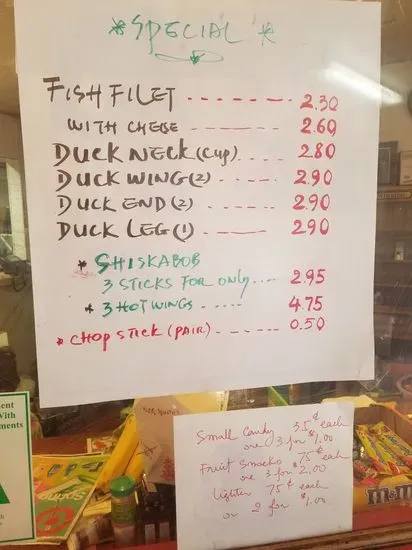 *SPECIAL*
FISH FILET ------- 2.30
WITH CHEESE ------- 2.60
DUCK NECK (Cup). ---- 280
DUCK WING (2) ---- 2.90
DUCK END (2) ---- 2.90
DUCK LEG (1) ---- 290
* SHISKABOB
3 STICKS FOR ONLY.... 2.95
* 3 HOT WINGS ----- 4.75
* CHOP STICK (PAIR) ------ 0.50
Small Candy 35¢ each
ore 3 for $1.00
Fruit Smacks 75¢ each
ore 3 for $2.00
lighter 75¢ each
or 2 for $1.00
ent
With
ments
m&m